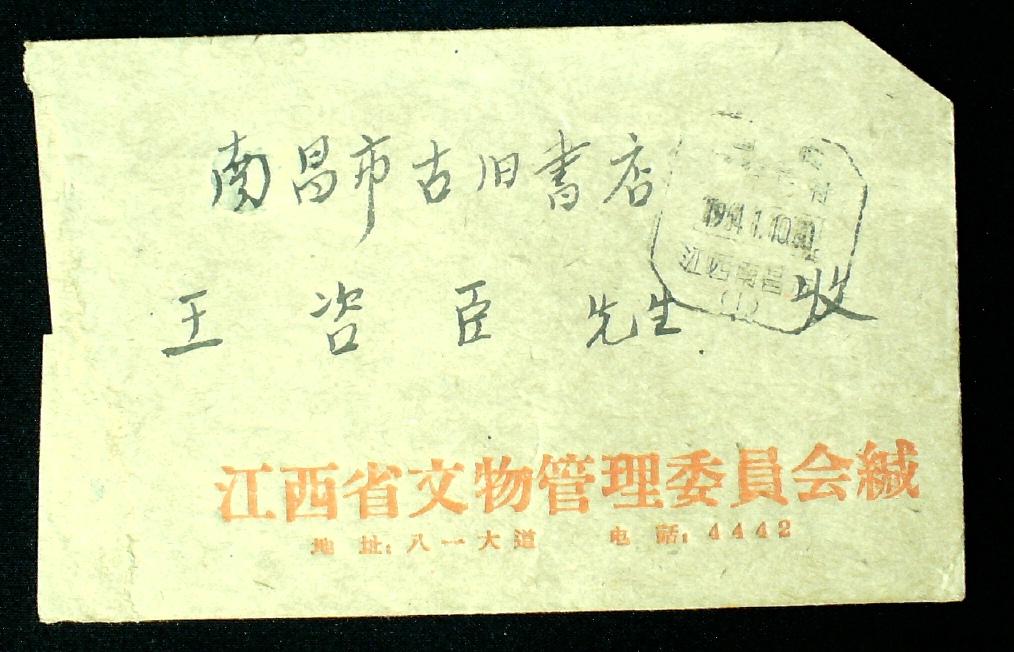 南昌市古旧書店
王咨臣 先生 收
1964.1.10
(1)
江西省文物管理委員会緘
地 址：八一大道 电 話：4442